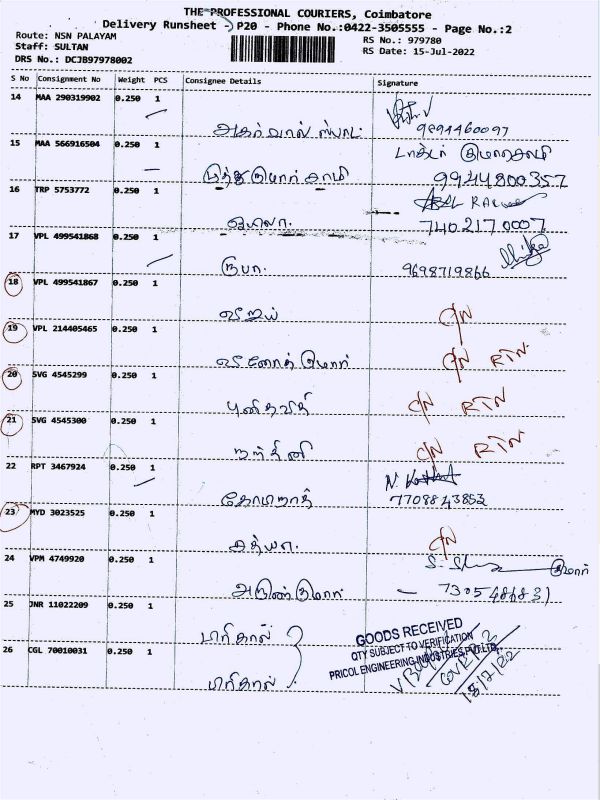 THE PROFESSIONAL COURIERS, Coimbatore
Delivery Runsheet - P20 - Phone No.:0422-3505555 - Page No.:2
Route: NSN PALAYAM
RS No.: 979780
Staff: SULTAN
RS Date: 15-Jul-2022
DRS No.: DCJB97978002
S No Consignment No Weight PCS Consignee Details Signature
14 MAA 290319902 0.250 1
9894460097
15 MAA 566916504 0.250 1
முத்துகுமார் சாமி 9944800357
16 TRP 5753772 0.250 1
7402170007
17 VPL 499541868 0.250 1
ரூபா. 9698719866
18 VPL 499541867 0.250 1
விஜய் C/N
19 VPL 214405465 0.250 1
வினோத் குமார் C/N RTN
20 SVG 4545299 0.250 1
புனிதவதி C/N RTN
21 SVG 4545300 0.250 1
C/N RTN
22 RPT 3467924 0.250 1
கோபிநாத் 7708843853
23 MYD 3023525 0.250 1
சத்யா. C/N
24 VPM 4749920 0.250 1
அருண்குமார் குமார்
7305486831
25 JNR 11022209 0.250 1
பரிகால்
26 CGL 70010031 0.250 1
பரிகால்
GOODS RECEIVED
QTY SUBJECT TO VERIFICATION
PRICOL ENGINEERING INDUSTRIES PVT LTD.
18/7/22